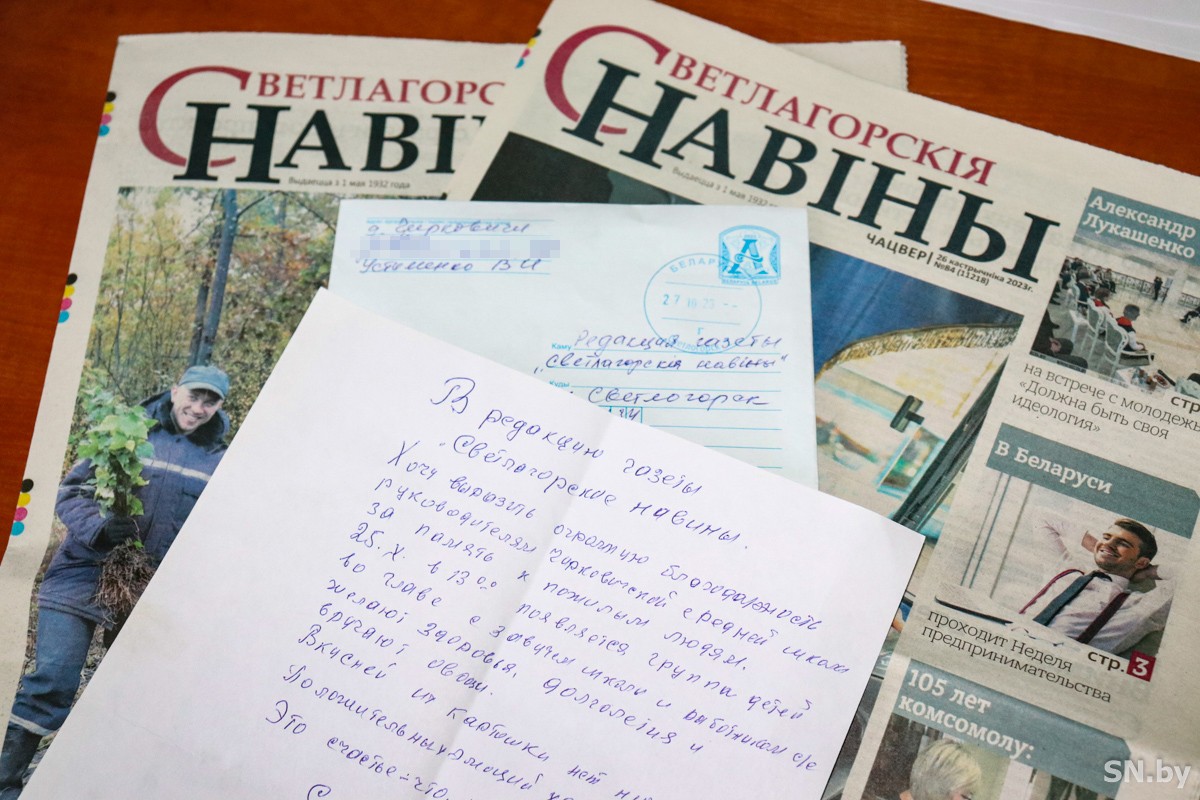 СВЕТЛАГОРСК
НАВІ
Выдаецца з 1 мая 1932 года
СВЕТЛАГОРСКІЯ
НАВІНЫ
Выдаецца з 1 мая 1932
ЧАЦВЕР
26 кастрычніка 2023г.
№84 (11218)
Александр
Лукашенко
на встрече с молодежь
«Должна быть своя
идеология»
СТР.
В Беларуси
проходит Неделя
предпринимательства
СТР. 3
105 лет
комсомолу:
д. Чирковичи
Устименко В И
БЕЛАР
А
27 10 23
Каму Редакция газеты
"Светлагорскія навіны"
Куды
Светлогорск
В редакцию газеты
"Светлагорские навины.
Хочу выразить огромную благодарность
руководителям Чирковичской средней школы
за память к пожилым людям.
25.X. в 13 00 появляется группа детей
во главе с завучем школы и работником с/с
желают здоровья, долголетия и
вручают овощи.
Вкусней их картошки нет
Положительных эмоций
Это счастье - что
SN.by